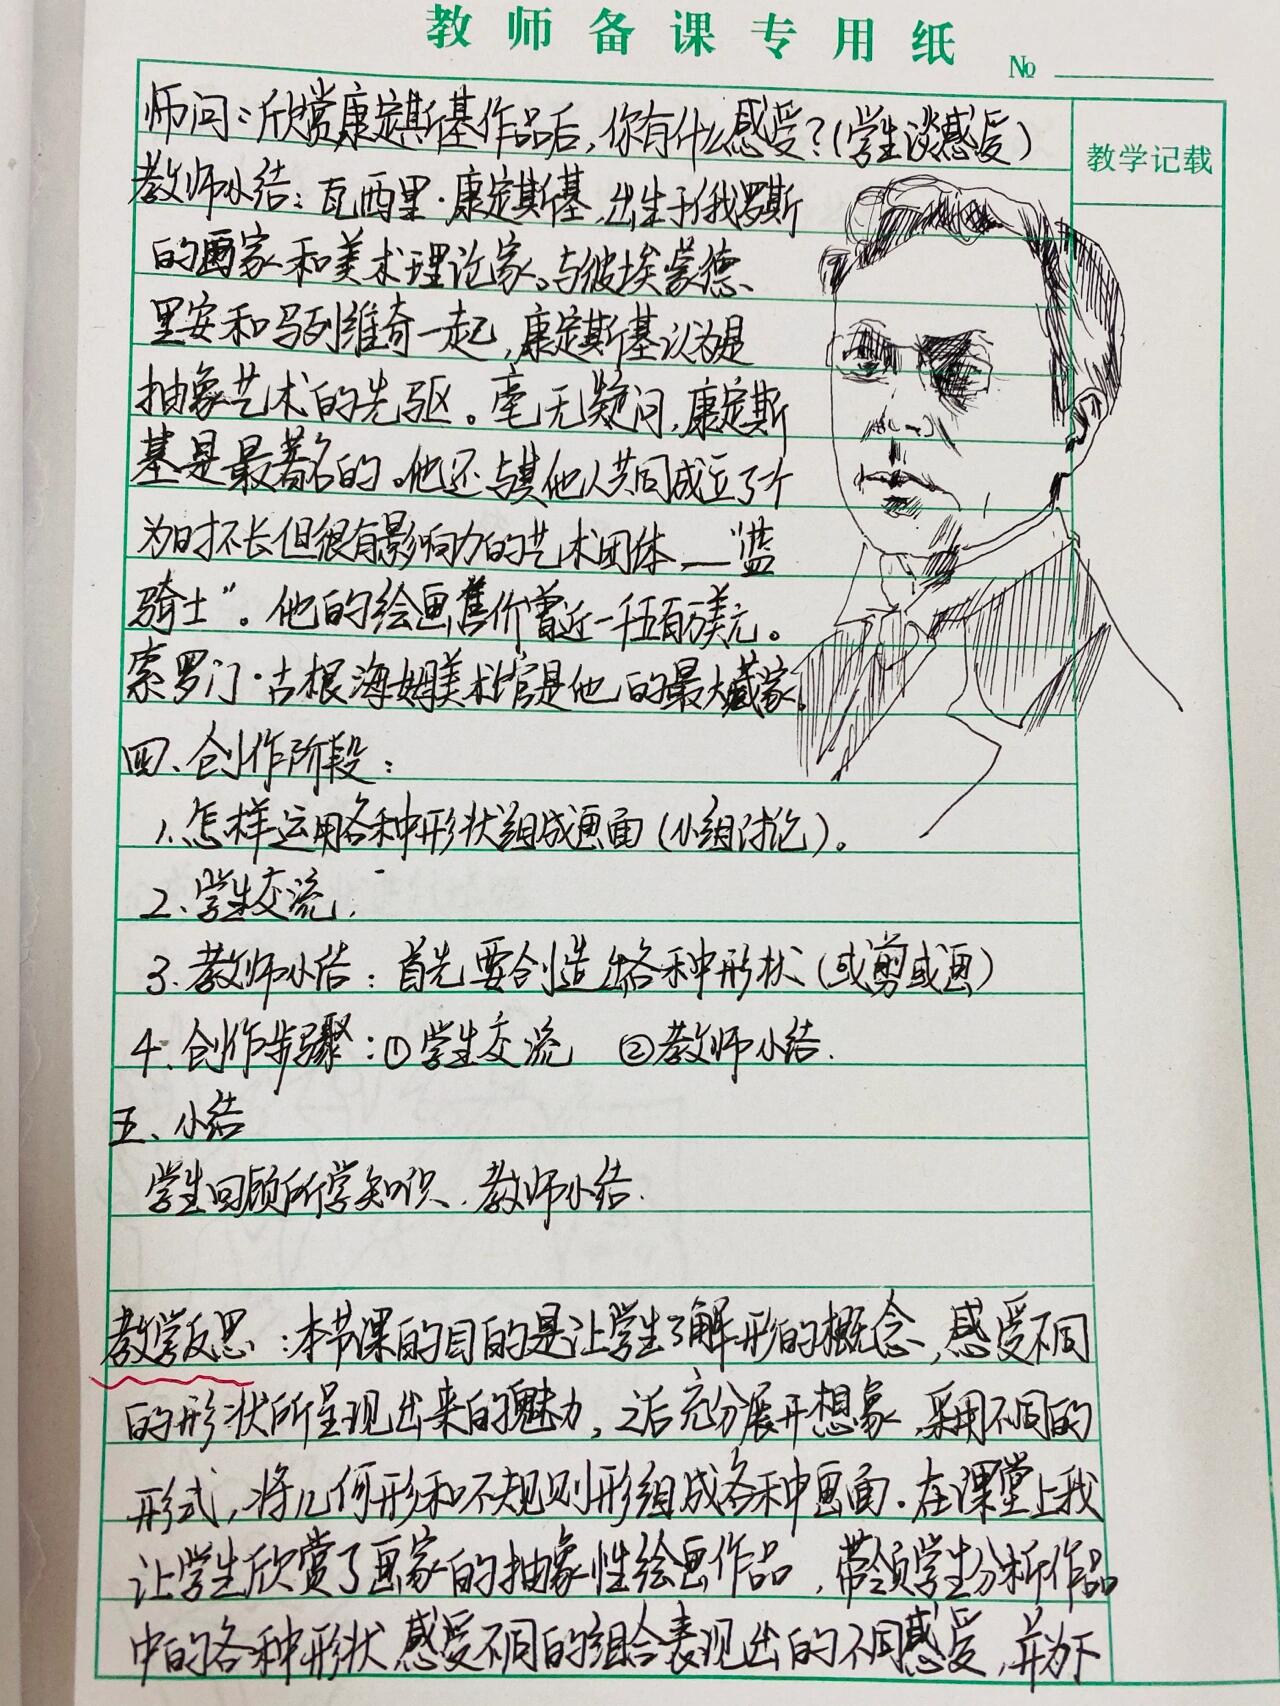 教师备课专用纸
No
教学记载
师问：欣赏康定斯基作品后，你有什么感受？（学生谈感受）
教师小结：瓦西里·康定斯基，出生于俄罗斯
的画家和美术理论家。与彼埃蒙德、
里安和马列维奇一起，康定斯基认为是
抽象艺术的先驱。毫无疑问，康定斯
基是最著名的。他还与其他人共同成立了个
为时不长但很有影响力的艺术团体——“蓝
骑士”。他的绘画售价曾近一千五百万美元。
索罗门·古根海姆美术馆是他的最大藏家。
四、创作阶段：
1、怎样运用各种形状组成画面（小组讨论）。
2、学生交流，
3、教师小结：首先要创造出各种形状（或剪或画）
4、创作步骤：①学生交流 ②教师小结.
五、小结
学生回顾所学知识、教师小结.
教学反思：本节课的目的是让学生了解形的概念，感受不同
的形状所呈现出来的魅力，之后充分展开想象，采用不同的
形式，将几何形和不规则形组成各种画面.在课堂上我
让学生欣赏了画家的抽象性绘画作品，带领学生分析作品
中的各种形状，感受不同的组合表现出的不同感受，并为下